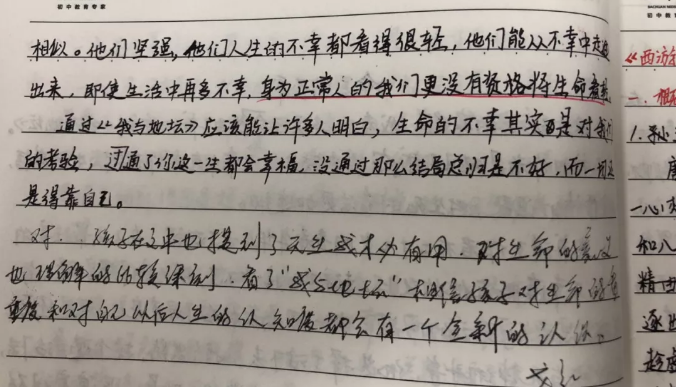 初中教育专家
相似。他们坚强,他们人生的不幸都看得很轻,他们能从不幸中走
出来,即使生活中再多不幸,身为正常人的我们更没有资格将生命看轻
通过《我与地坛》应该能让许多人明白,生命的不幸其实是对我们
的考验,通过了你这一生都会幸福,没通过那么结局总归是不好,而一切还
是得靠自己。
对,孩子在文中也提到了天生我才必有用,对生命的意义
也理解的比较深刻,看了“我与地坛”相信孩子对生命的
和对自己以后人生的认知度都会有一个全新的认识。
初中教
《西游
一、概
1.孙
一心
和八
精
逐